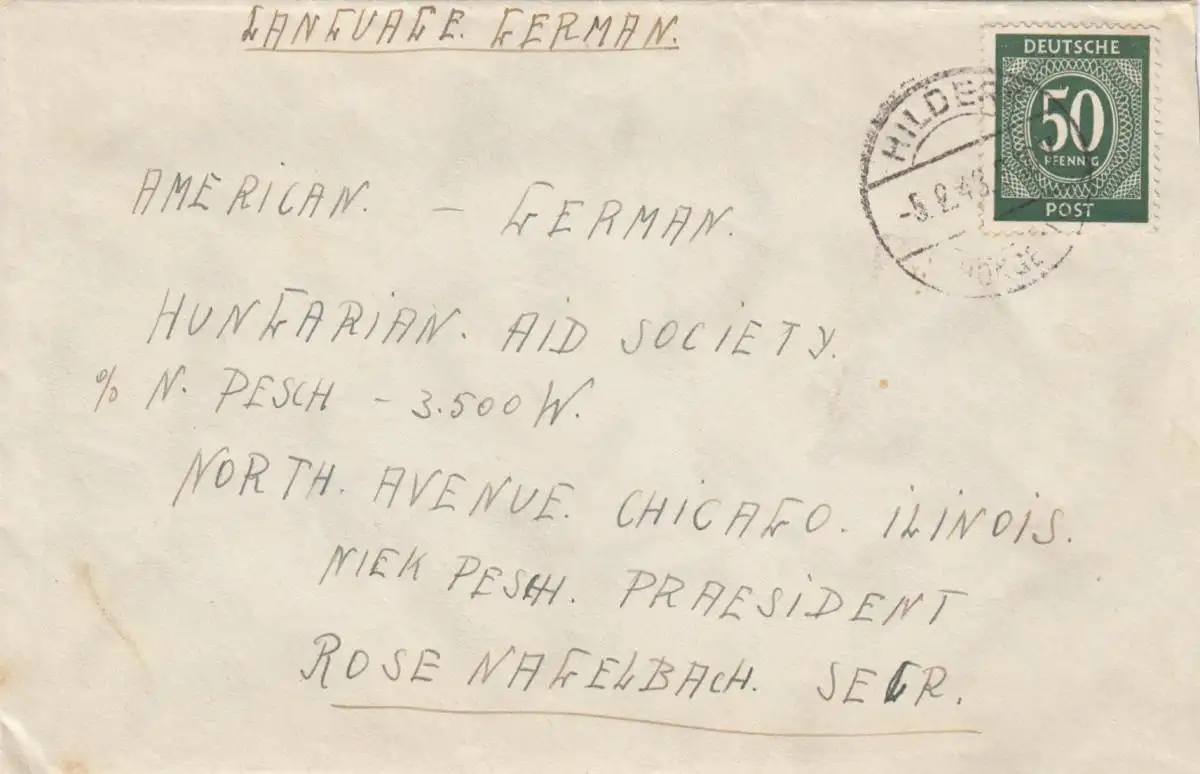 LANGUAGE. GERMAN.
DEUTSCHE
50
PFENNIG
POST
-5.2.48
AMERICAN. - GERMAN.
HUNGARIAN. AID SOCIETY.
% N. PESCH - 3.500 W.
NORTH. AVENUE. CHICAGO. ILINOIS.
NIEK PESCH. PRAESIDENT
ROSE NAGELBACH. SECR.